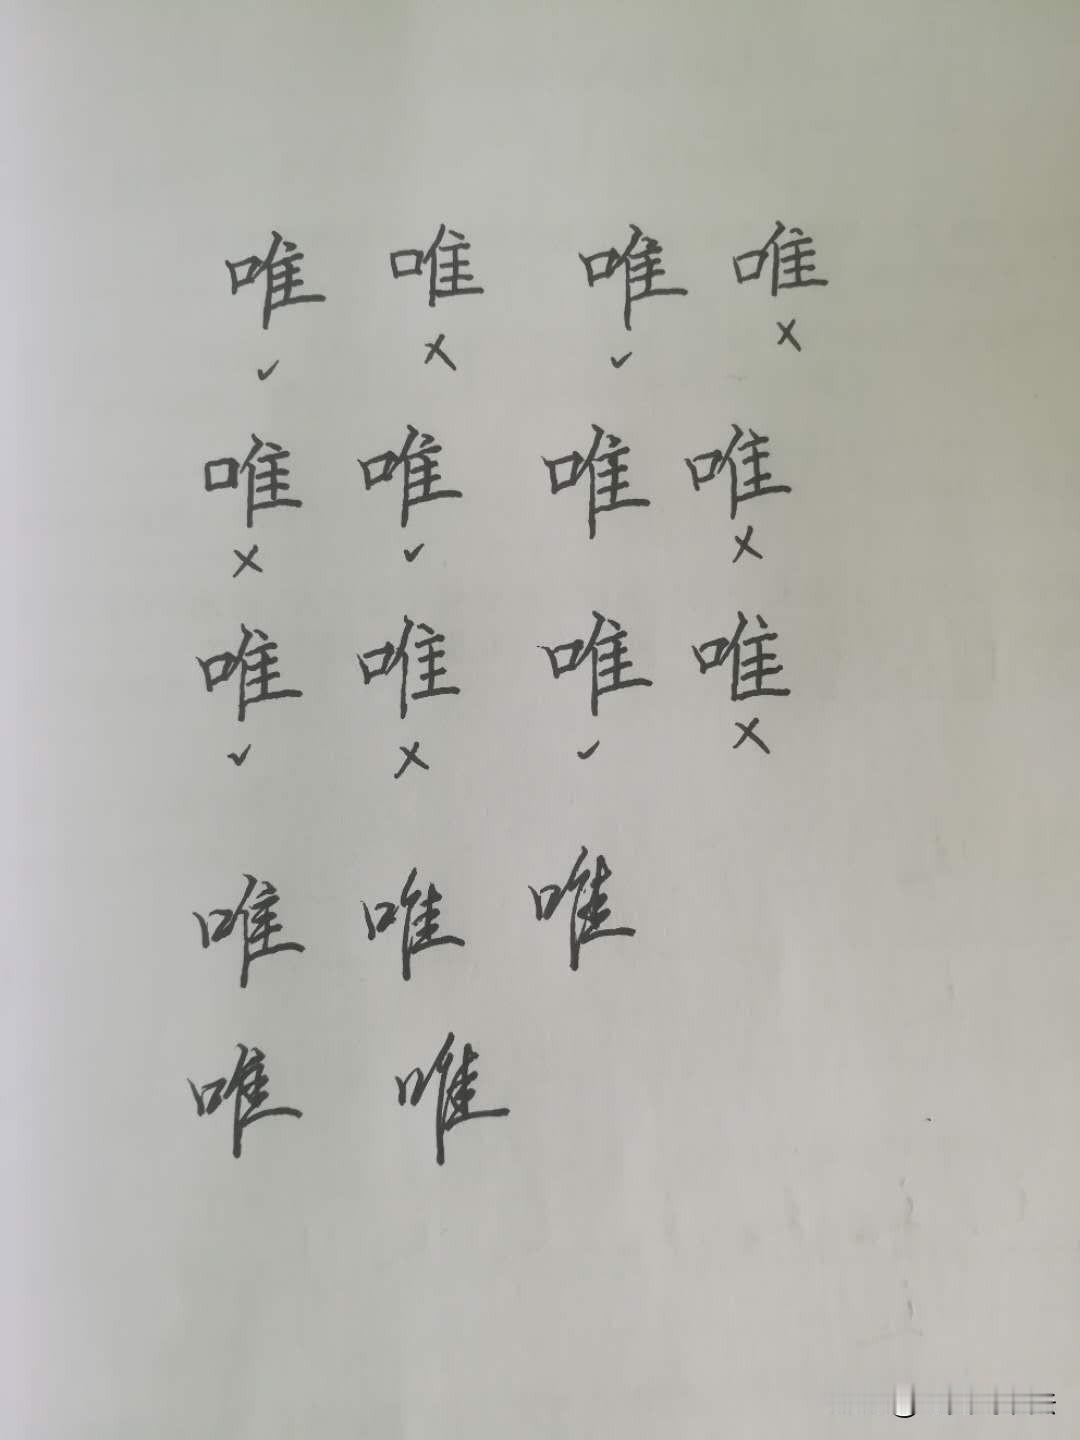 唯 唯 唯 唯
✓ × ✓ ×
唯 唯 唯 唯
× ✓ ×
唯 唯 唯 唯
✓ × ✓ ×
唯 唯 唯
唯 唯